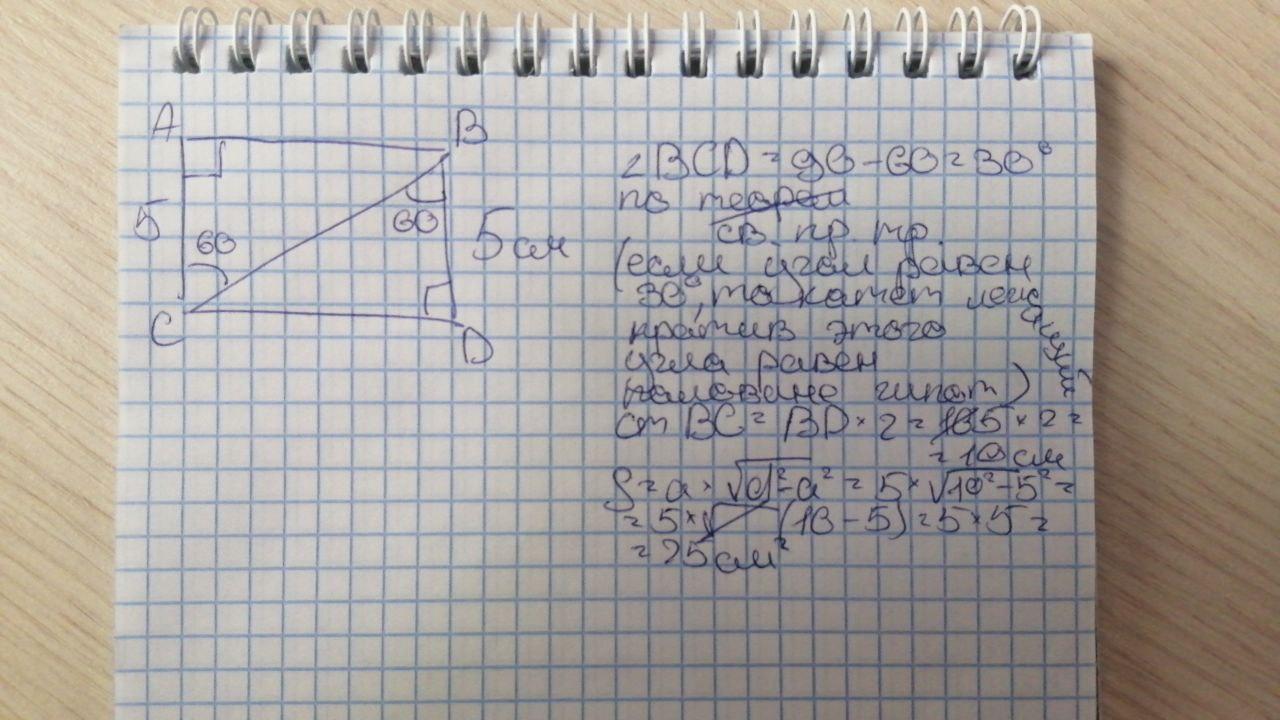 A
B
5
60
60
5 см
C
D
∠BCD = 90 - 60 = 30°
по теорем
св. пр. тр.
(если угол равен
30°, то катет лежащий
против этого
угла равен
половине гипот)
от BC = BD × 2 = 5 × 2 =
= 10 см
S = a × √d² - a² = 5 × √10² - 5² =
= 5 × √ (10 - 5) = 5 × 5 =
= 25 см²